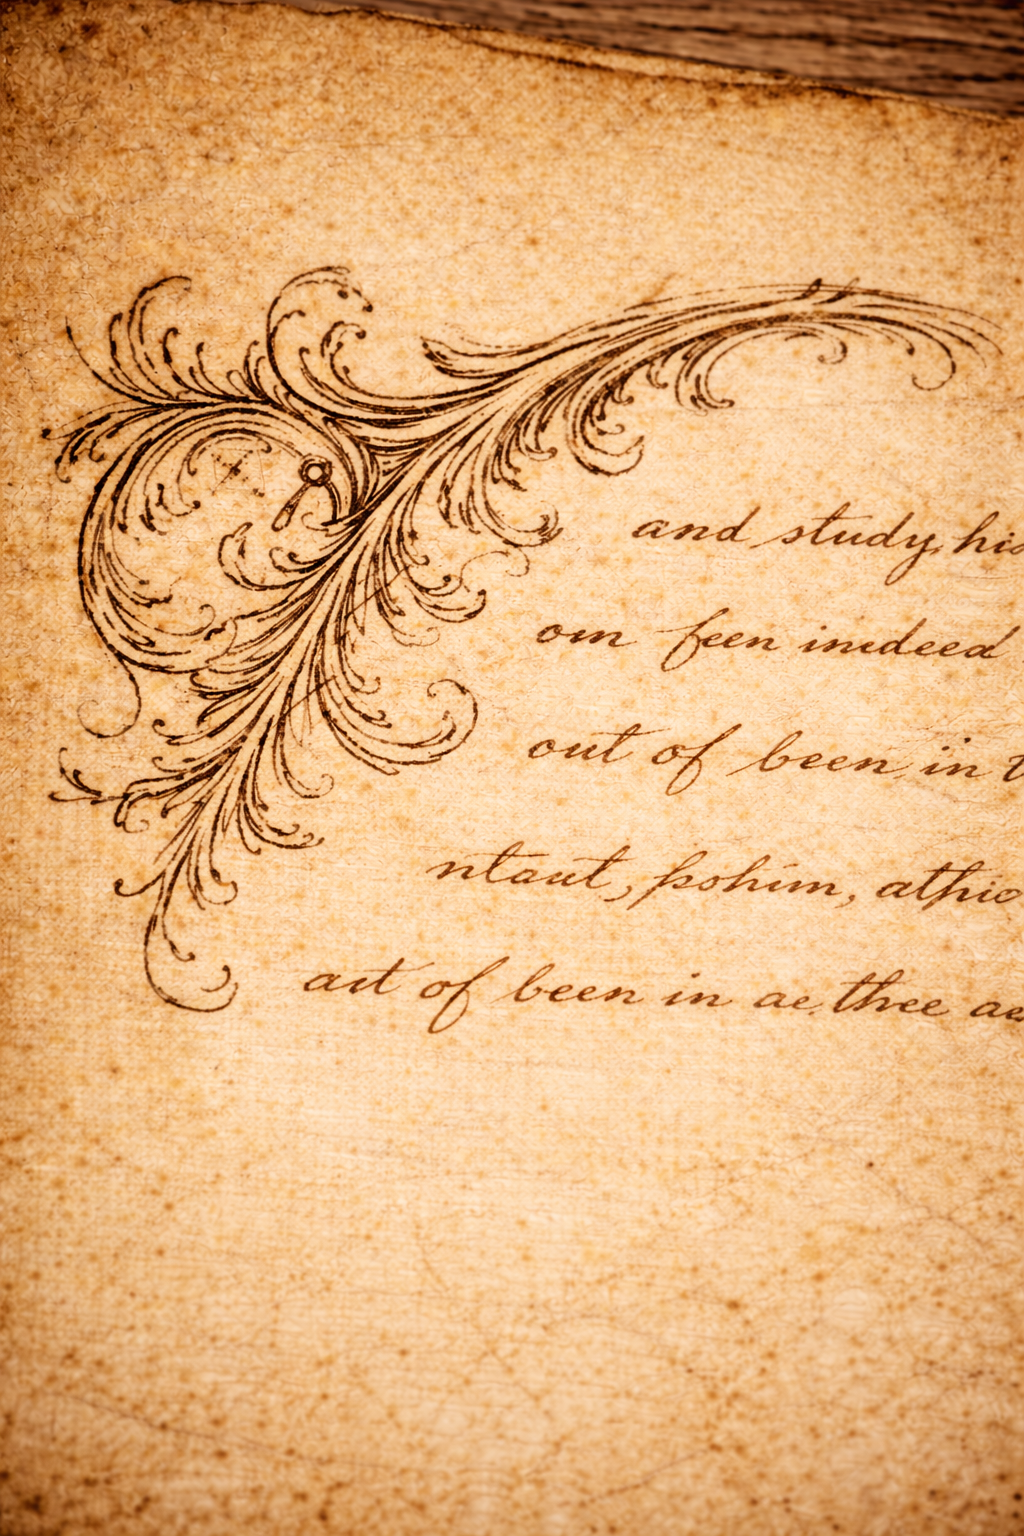 and study, his
om feen inedeed
out of been in t
ntaut, pohim, athic
aut of been in ae thee ae